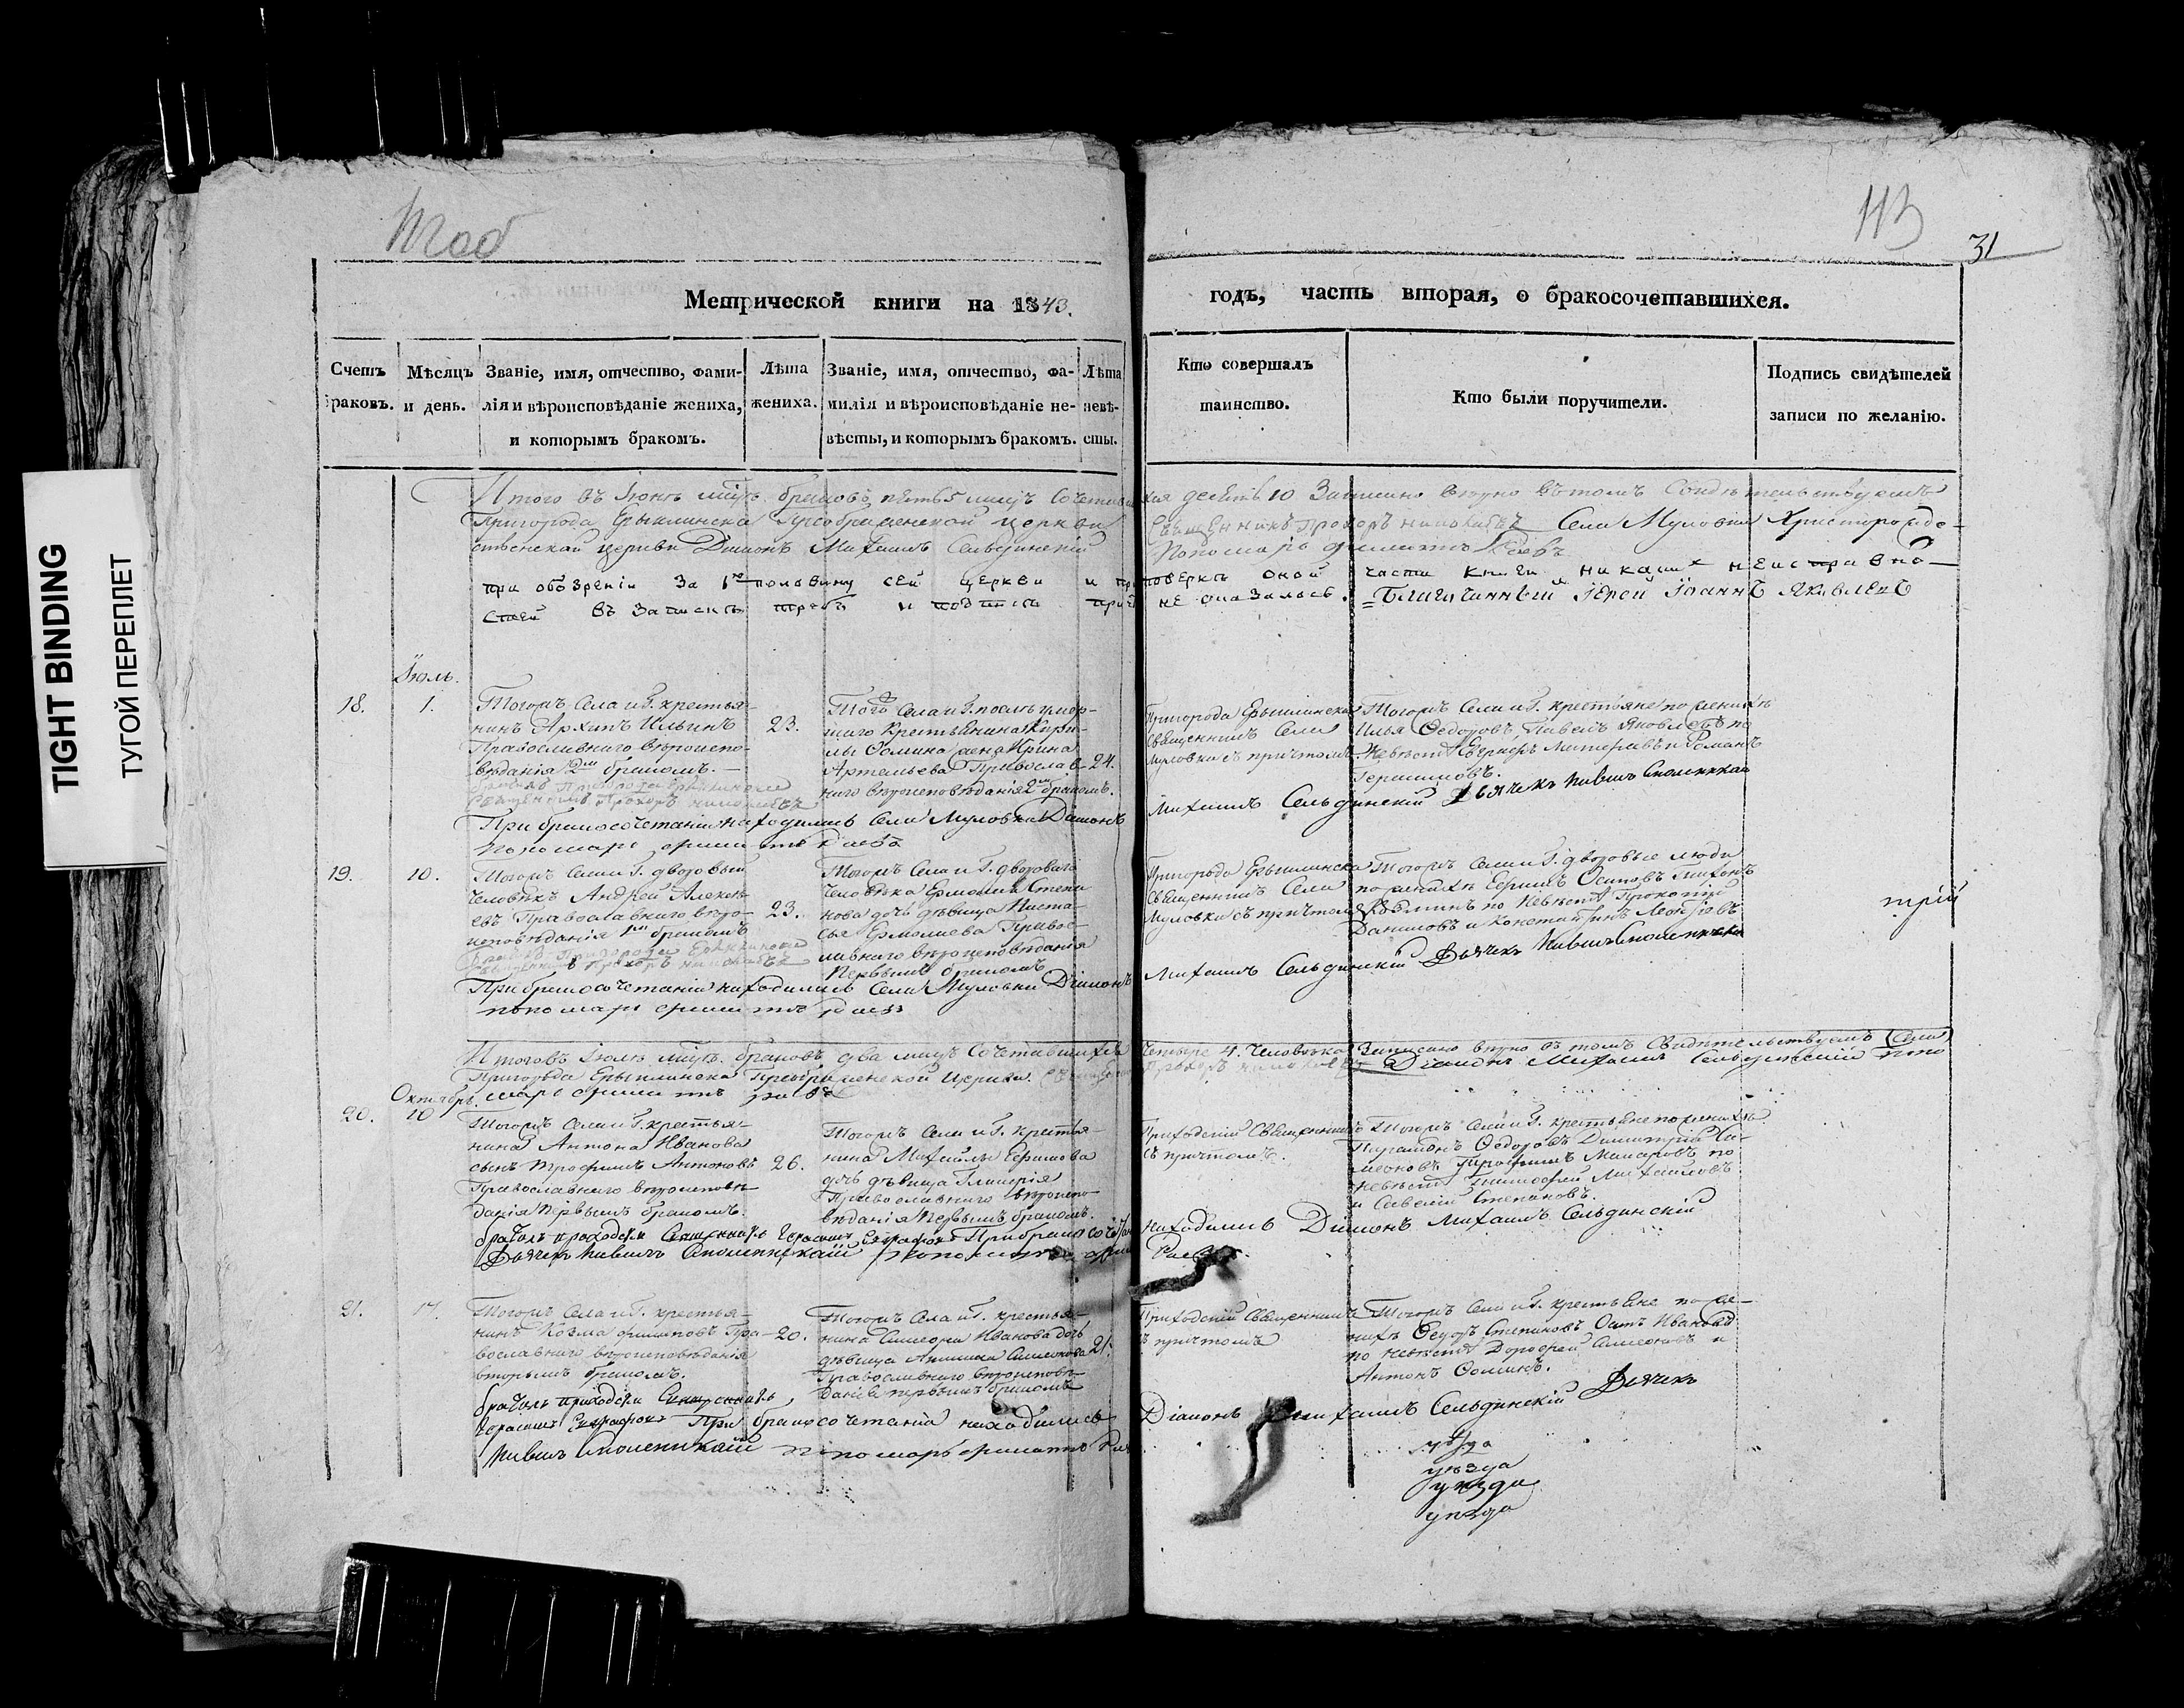 TIGHT BINDING
ТУГОЙ ПЕРЕПЛЕТ
113
31
Метрической книги на 1843.
годъ, часть вторая, о бракосочетавшихся.
Счетъ браковъ.
Мѣсяцъ и день.
Званіе, имя, отчество, фами-
лія и вѣроисповѣданіе жениха,
и которымъ бракомъ.
Лѣта
жениха.
Званіе, имя, отчество, фа-
милія и вѣроисповѣданіе не-
вѣсты, и которымъ бракомъ.
Лѣта
невѣ-
сты.
Кто совершалъ
таинство.
Кто были поручители.
Подпись свидѣтелей
записи по желанію.
Итого въ Іюнѣ браковъ пять 5 лицъ Сочетавшихся десять 10 Записано вѣрно въ томъ Свидѣтельствуемъ
Пригорода Ерыклинска Преображенской церкви Священникъ Прохоръ Села Муловки Христорожде-
ственской церкви Діаконъ Михаилъ Сельдинскій Пономарь
при обозреніи за 1ю половину сей церкви и при поверкѣ оной части книги никаких неисправно-
стей въ Запискѣ требъ и не оказалось. Благочинный Іерей Іоаннъ Яковлевъ
Іюль.
18.
1.
Тогожъ Села и Г. крестья-
нинъ Архипъ Ильинъ
Православнаго вѣроиспо-
вѣданія 2мъ бракомъ.
23.
Того Села и Г. послѣ умер-
шаго крестьянина Кири-
лы Фомина жена Ирина
Артемьева Православ-
наго вѣроисповѣданія 2мъ бракомъ.
24.
Пригорода Ерыклинска
Священникъ Села
Муловки съ причтомъ
Тогожъ Села и Г. крестьяне по женихѣ
Илья Ѳедоровъ, Павелъ Яковлевъ по
Невѣстѣ и Романъ
Герасимовъ.
При бракосочетаніи находились Села Муловки Діаконъ Михаилъ Сельдинскій Дьячекъ
Пономарь
19.
10.
Тогожъ Села и Г. дворовый
Человѣкъ Андрей Алексѣ-
евъ Православнаго вѣро-
исповѣданія 1мъ бракомъ
23.
Тогожъ Села и Г. двороваго
Человѣка Ермолая Степа-
нова дочь дѣвица Наста-
сья Ермолаева Правос-
лавнаго вѣроисповѣданія
Первымъ бракомъ
Пригорода Ерыклинска
Священникъ Села
Муловки съ причтомъ
Тогожъ Села и Г. дворовые люди
по женихѣ Ефимъ Осиповъ Тихонъ
по Невѣстѣ Прокопій
Даниловъ и Константинъ Леонтьевъ
трій
При бракосочетаніи находились Села Муловки Діаконъ Михаилъ Сельдинскій Дьячекъ
пономарь
Итого въ Іюлѣ браковъ два лицъ Сочетавшихся Четыре 4. Человѣка Записано вѣрно въ томъ Свидѣтельствуемъ
Пригорода Ерыклинска Преображенской Церкви Діаконъ Михаилъ Сельдинскій поно-
марь
Октябрь.
20.
10
Тогожъ Села и Г. крестья-
нина Антона Иванова
сынъ Трофимъ Антоновъ
Православнаго вѣроисповѣ-
данія Первымъ бракомъ.
26.
Тогожъ Села и Г. крестья-
нина Михайлы Ефимова
дочь дѣвица Гликерія
Православнаго вѣроиспо-
вѣданія Первымъ бракомъ.
Приходскій Священникъ
съ причтомъ.
Тогожъ Села и Г. крестьяне по женихѣ
Парамонъ Ѳедоровъ Димитрій Си-
меоновъ Трофимъ Макаровъ по
невѣстѣ Тимофей Михайловъ
и Савелій Степановъ.
При бракосочетаніи находились Діаконъ Михаилъ Сельдинскій
21.
17.
Тогожъ Села и Г. крестья-
нинъ Козма Филиповъ Пра-
вославнаго вѣроисповѣданія
вторымъ бракомъ.
20.
Тогожъ Села и Г. крестья-
нина Симеона Иванова дочь
дѣвица Симеонова
Православнаго вѣроисповѣ-
данія первымъ бракомъ
21.
Приходскій Священникъ
съ причтомъ
Тогожъ Села и Г. крестьяне по же-
нихѣ Ѳедоръ Степановъ Ивановъ
по невѣстѣ Дорофей Симеоновъ и
Антонъ Фоминъ.
При бракосочетаніи находились Діаконъ Михаилъ Сельдинскій Дьячекъ
уѣзда
уѣзда
уѣзда
уѣзда